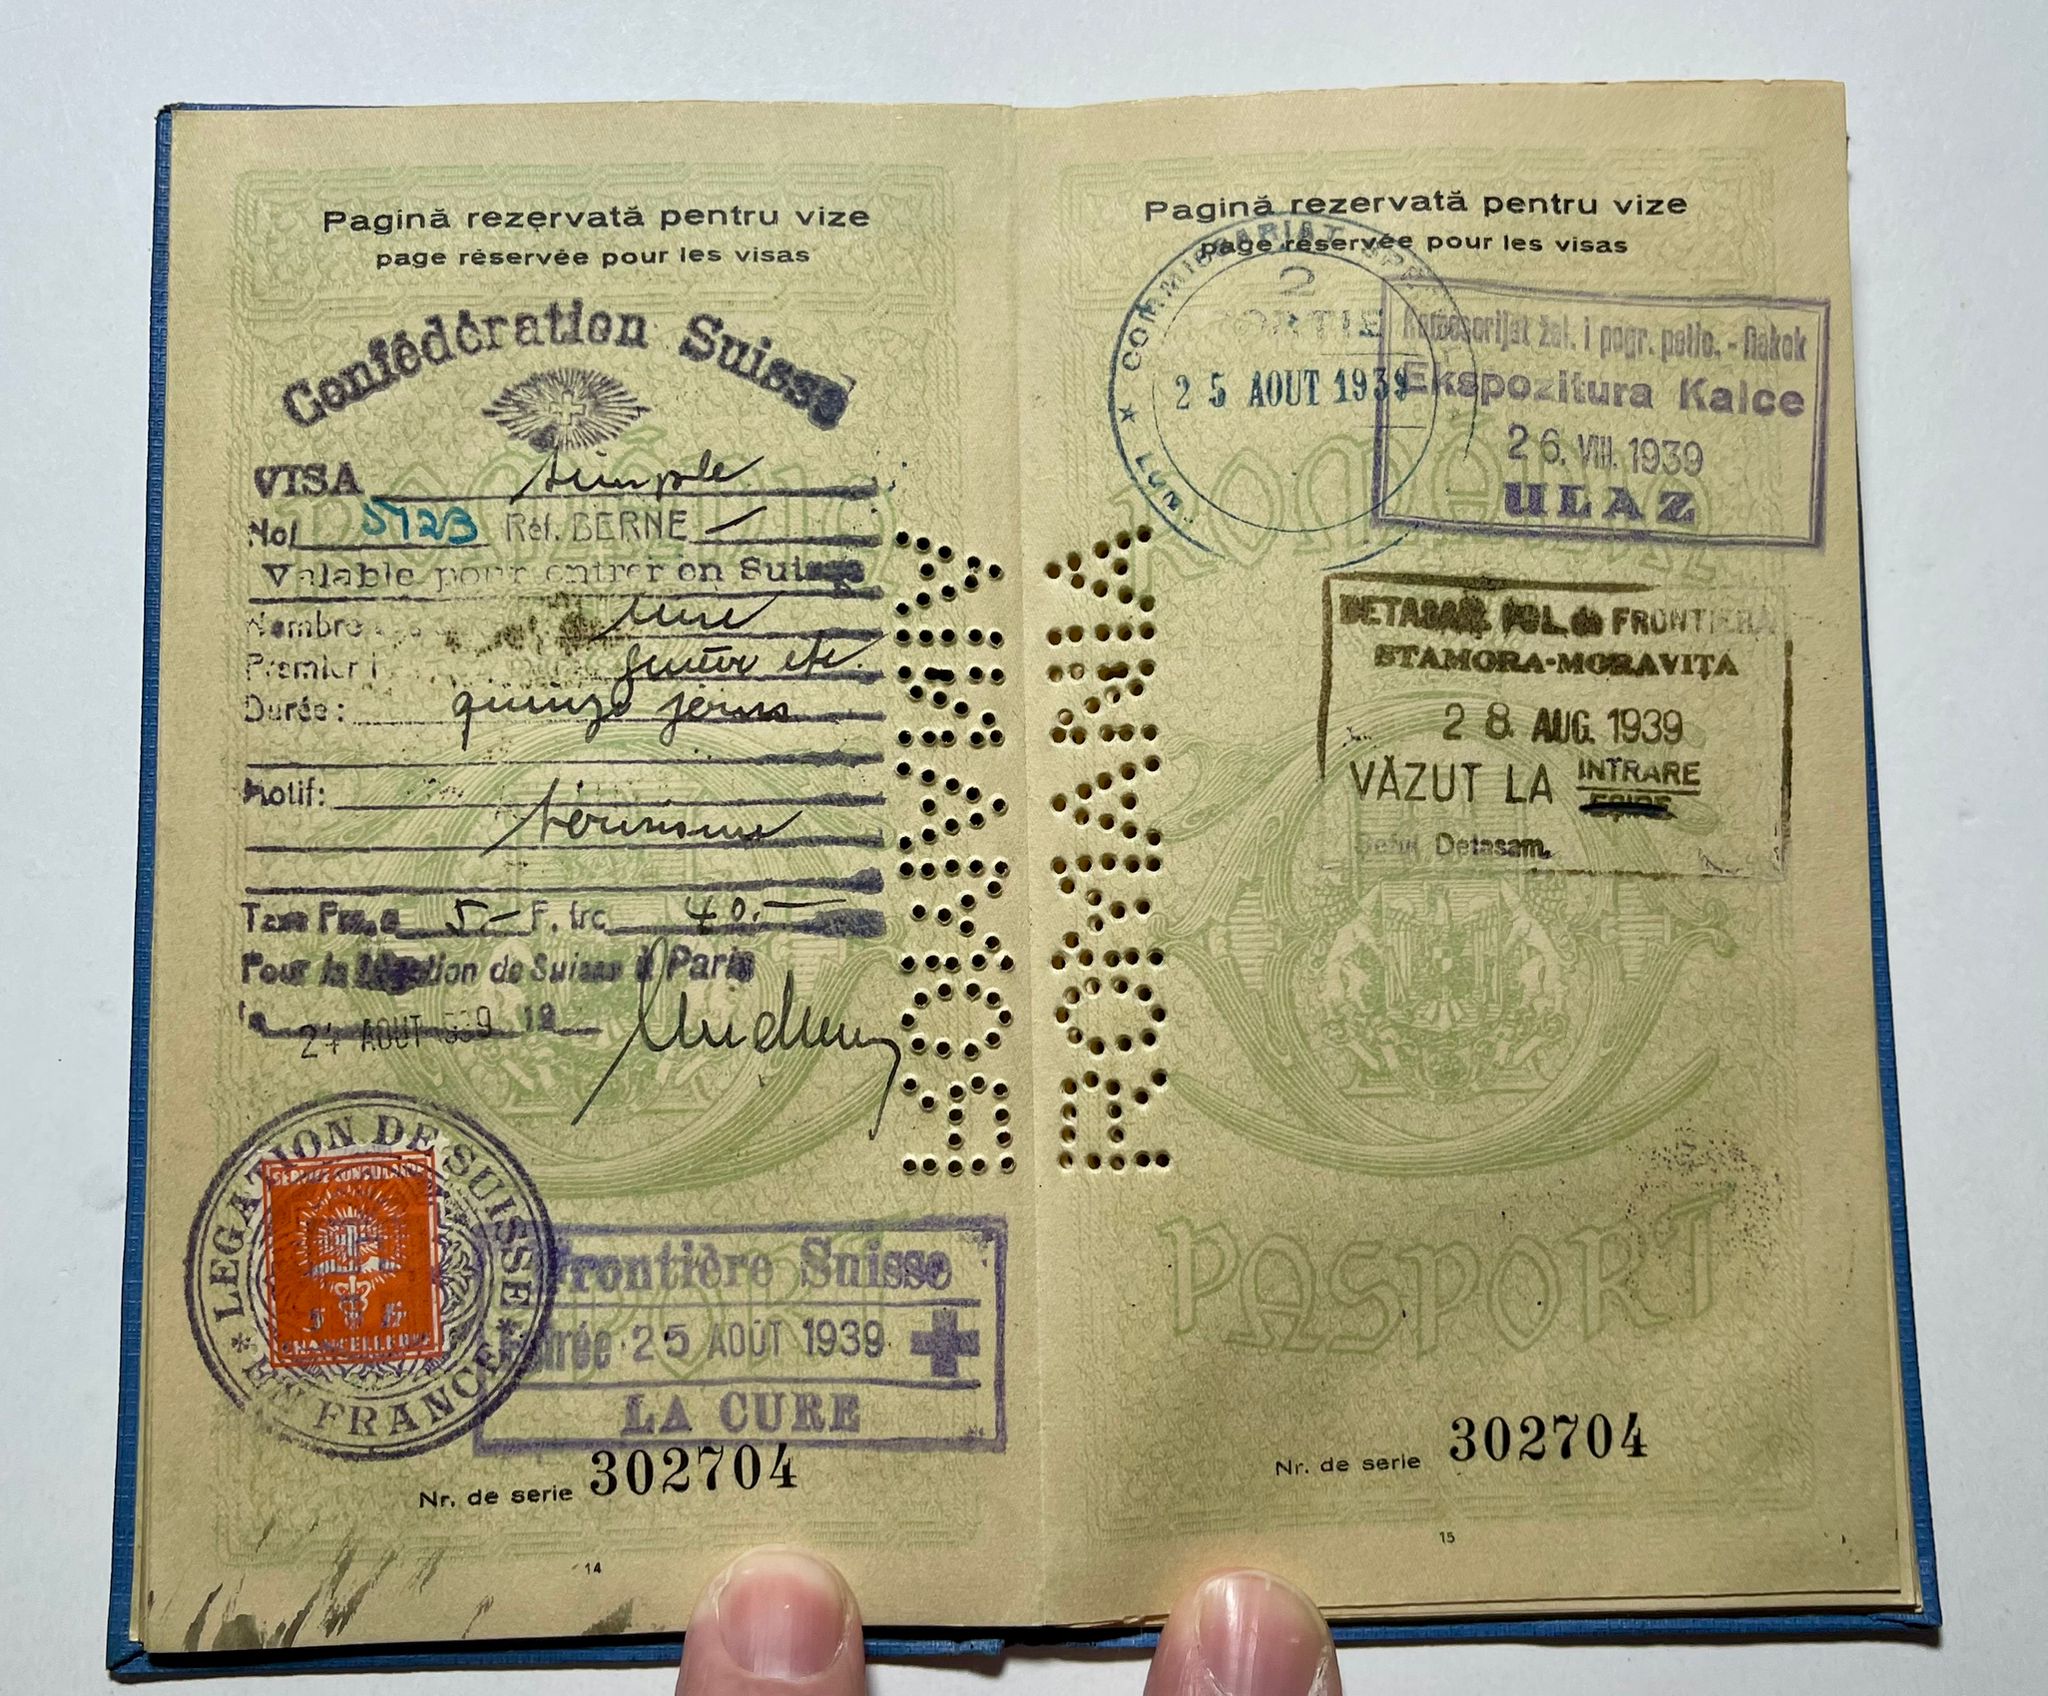 Pagină rezervată pentru vize
page réservée pour les visas
Confédération Suisse
VISA simple
No/ 5723 Réf. BERNE —
Valable pour entrer en Suisse
Nombre une
Premier
Durée: quinze jours
Motif:
tourisme
Taxe Frs. 5.— F. frc 40.—
Pour la Légation de Suisse à Paris
le 24 AOUT 1939 19
LEGATION DE SUISSE
* EN FRANCE *
SERVICE CONSULAIRE
5 5
CHANCELLERIE
Frontière Suisse
Entrée 25 AOÛT 1939
LA CURE
Nr. de serie 302704
14
ROMÂNIA
PASPORT
ROMANIA
Pagină rezervată pentru vize
page réservée pour les visas
★ COMMISSARIAT SPE
2
SORTIE
25 AOUT 1939
Komesarijat žel. i pogr. polic. - Rakek
Ekspozitura Kalce
26. VIII. 1939
ULAZ
DETASAM. POL. de FRONTIERA
STAMORA-MORAVIȚA
28. AUG. 1939
VĂZUT LA INTRARE
EȘIRE
Șeful Detasam.
ROMANIA
ROMÂNIA
PASPORT
Nr. de serie 302704
15